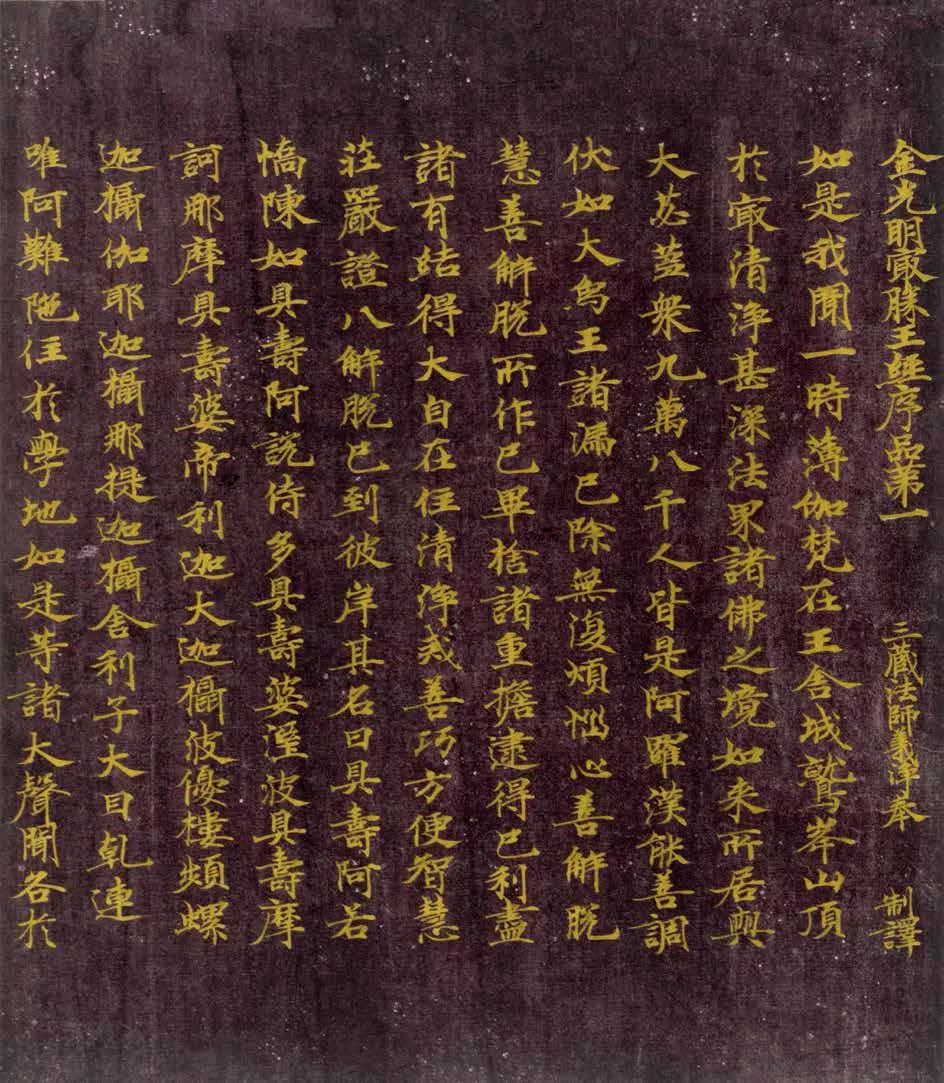 金光明冣勝王經序品第一 三藏法師義淨奉 制譯
如是我聞一時薄伽梵在王舍城鷲峯山頂
於冣清淨甚深法界諸佛之境如來所居與
大苾蒭衆九萬八千人皆是阿羅漢能善調
伏如大烏王諸漏已除無復煩惱心善解脫
慧善解脫所作已畢捨諸重擔逮得已利盡
諸有結得大自在住清淨戒善巧方便智慧
莊嚴證八解脫已到彼岸其名曰具壽阿若
憍陳如具壽阿說侍多具壽婆濕波具壽摩
訶那摩具壽婆帝利迦大迦攝波優樓頻螺
迦攝伽耶迦攝那提迦攝舍利子大目乾連
唯阿難陁住於學地如是等諸大聲聞各於